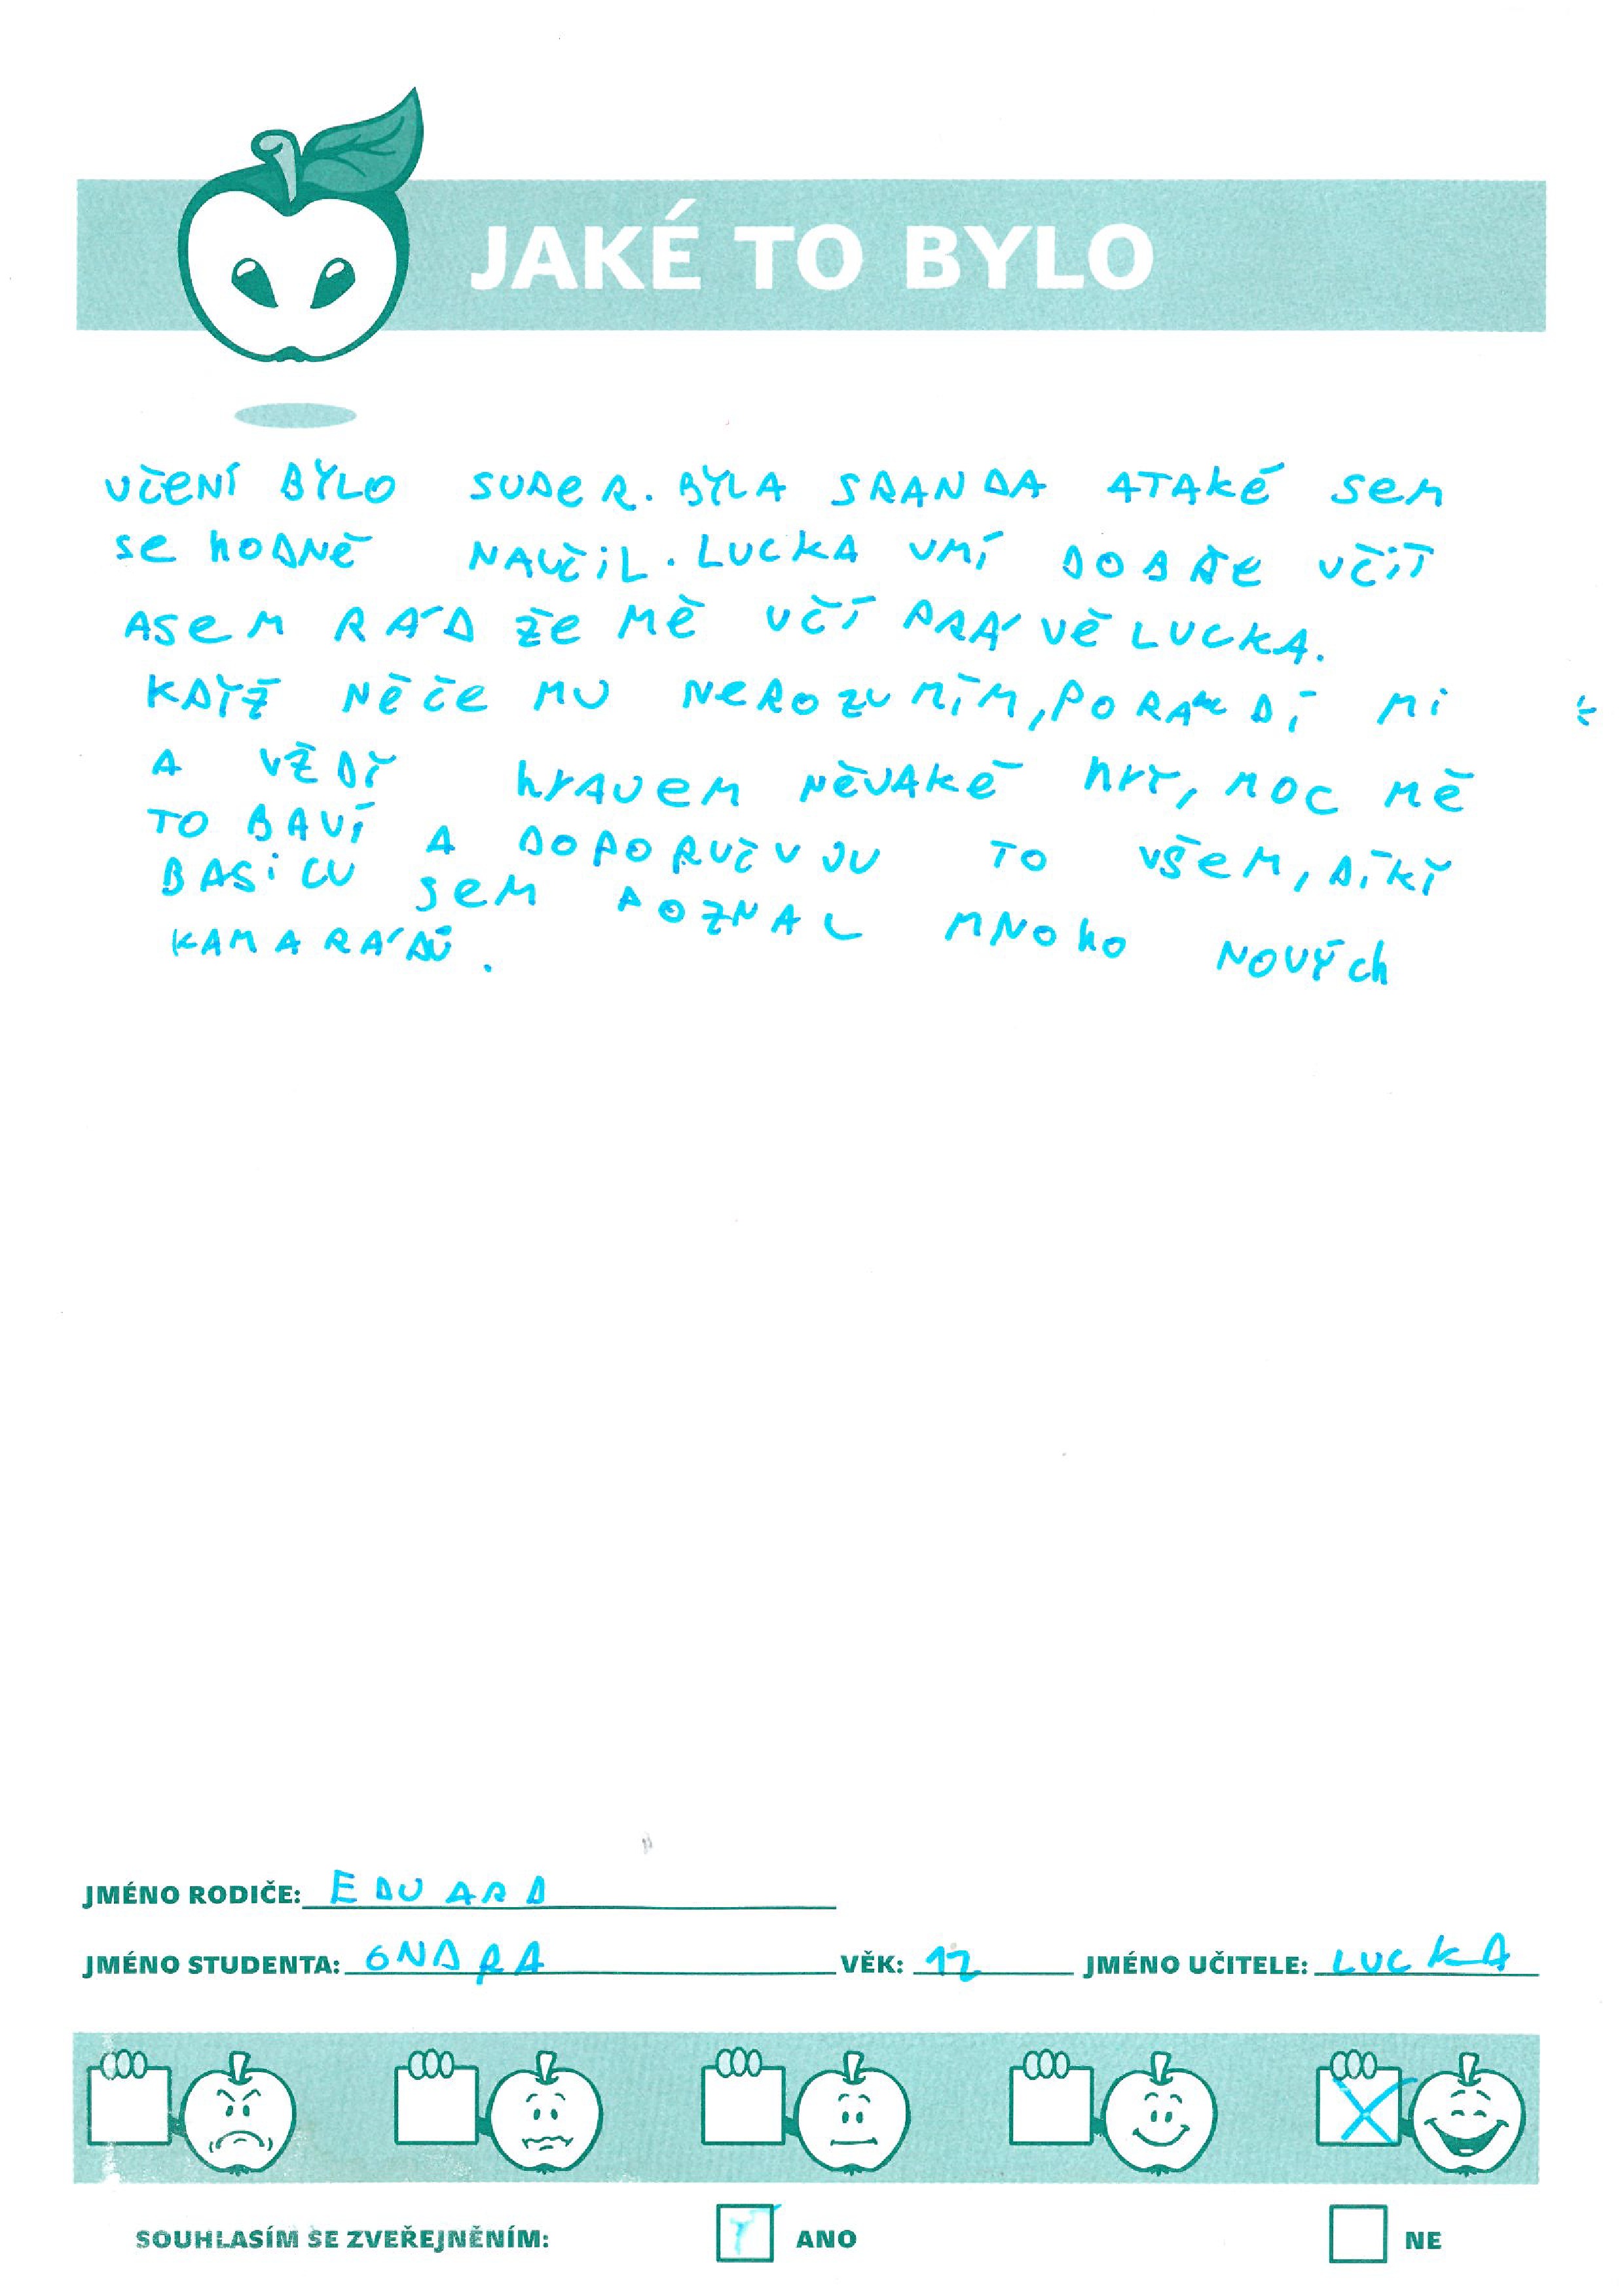 JAKÉ TO BYLO
UČENÍ BYLO SUPER. BYLA SRANDA ATAKÉ SEM
SE HODNĚ NAUČIL. LUCKA UMÍ DOBŘE UČIT
ASEM RÁD ŽE MĚ UČÍ PRÁVĚ LUCKA.
KDYŽ NĚČEMU NEROZUMÍM, PORADÍ MI
A VŽDY hrAJEM NĚJAKÉ hrY, MOC MĚ
TO BAVÍ A DOPORUČUJU TO VŠEM, DÍKY
BASICU SEM POZNAL MNOHO NOVÝCH
KAMARÁDŮ.
JMÉNO RODIČE: EDUARD
JMÉNO STUDENTA: ONDRA VĚK: 12 JMÉNO UČITELE: LUCKA
SOUHLASÍM SE ZVEŘEJNĚNÍM: ANO NE